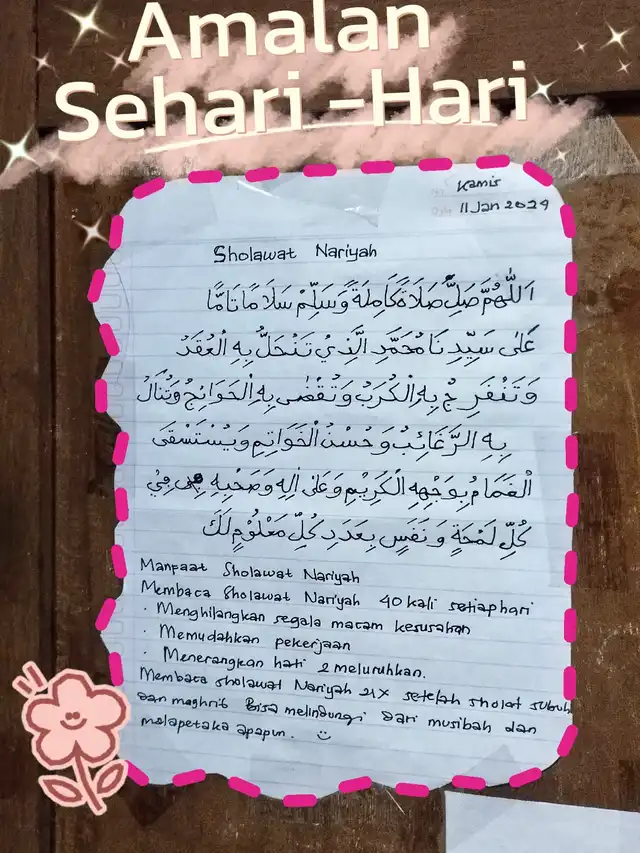 Amalan
Sehari-Hari
Kamis
11 Jan 2024
Sholawat Nariyah
اَللّٰهُمَّ صَلِّ صَلَاةً كَامِلَةً وَسَلِّمْ سَلَامًا تَامًّا
عَلٰى سَيِّدِنَا مُحَمَّدِ الَّذِيْ تَنْحَلُّ بِهِ الْعُقَدُ
وَتَنْفَرِجُ بِهِ الْكُرَبُ وَتُقْضٰى بِهِ الْحَوَائِجُ وَتُنَالُ
بِهِ الرَّغَائِبُ وَحُسْنُ الْخَوَاتِمِ وَيُسْتَسْقَى
الْغَمَامُ بِوَجْهِهِ الْكَرِيْمِ وَعَلٰى اٰلِهِ وَصَحْبِهِ فِيْ
كُلِّ لَمْحَةٍ وَنَفَسٍ بِعَدَدِ كُلِّ مَعْلُوْمٍ لَكَ
Manpaat Sholawat Nariyah
Membaca Sholawat Nariyah 40 kali setiap hari
· Menghilangkan segala macam kesusahan
· Memudahkan pekerjaan
· Menerangkan hati & meluruhkan.
Membaca sholawat Nariyah 21x setelah sholat subuh
dan maghrib Bisa melindungi dari musibah dan
malapetaka apapun.